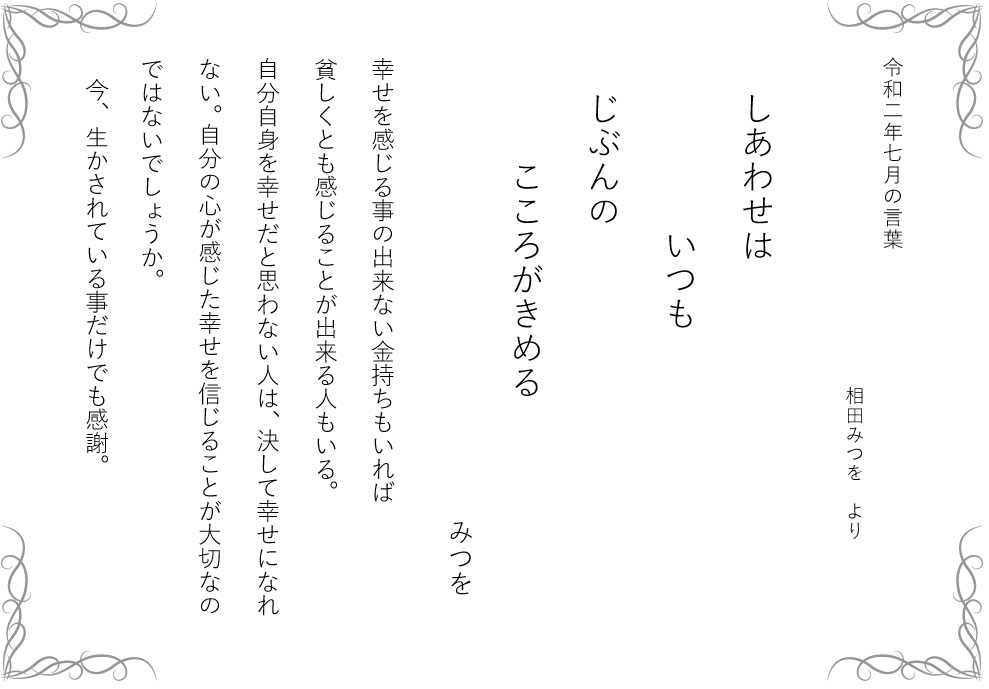 令和二年七月の言葉
相田みつを　より
しあわせは
いつも
じぶんの
こころがきめる
みつを
幸せを感じる事の出来ない金持ちもいれば
貧しくとも感じることが出来る人もいる。
自分自身を幸せだと思わない人は、決して幸せになれ
ない。自分の心が感じた幸せを信じることが大切なの
ではないでしょうか。
今、生かされている事だけでも感謝。